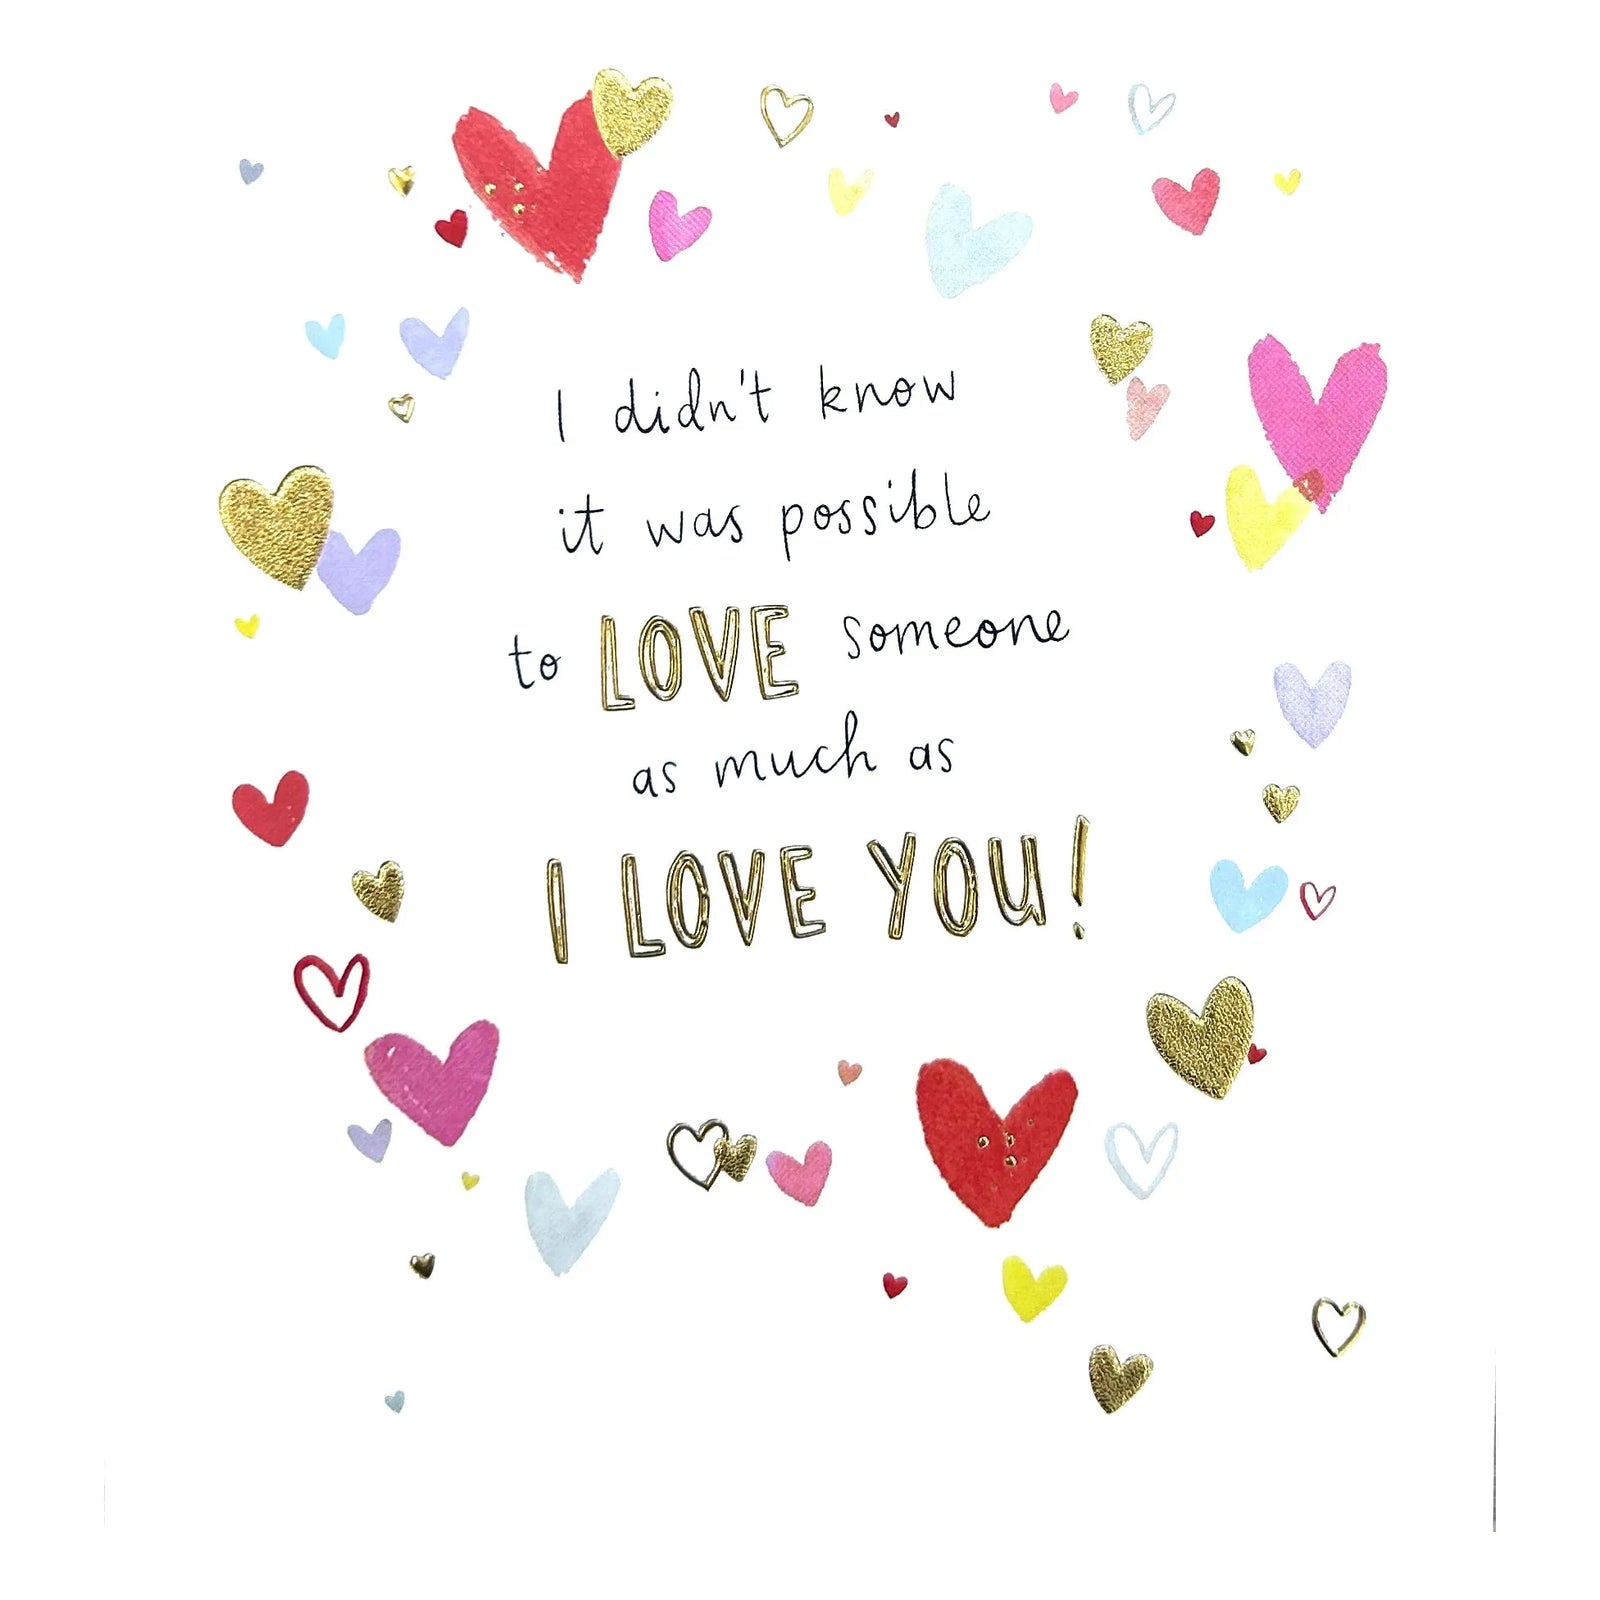 I didn't know
it was possible
to LOVE someone
as much as
I LOVE YOU!